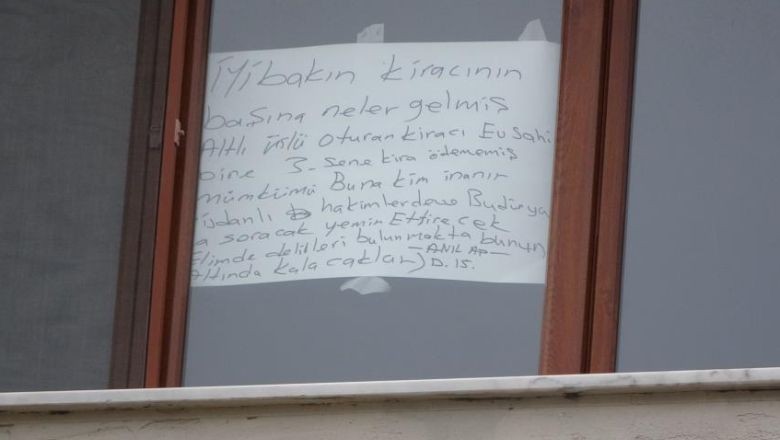 İyi bakın kiracının
başına neler gelmiş
Altlı üstlü oturan kiracı Ev sahi
bine 3-Sene kira ödememiş
mümkümü Buna kim inanır
hakimlerde Bu dünya
a soracak yemin Ettirecek
Elimde delilleri bulunmakta bunun
Altında kalacaklar) -ANIL AP-
D.15.